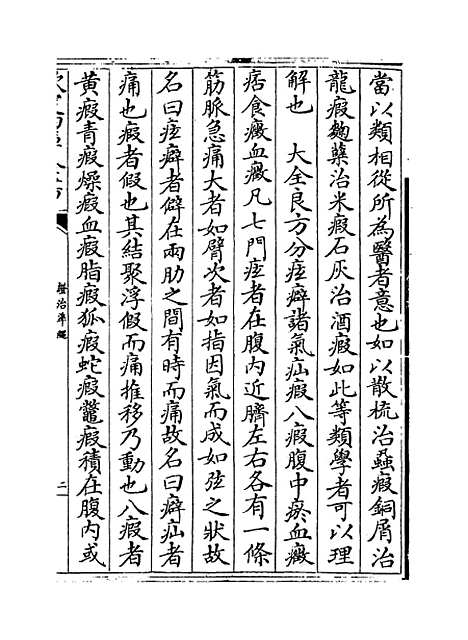 當以類相從所為醫者意也如以散梳治蝨瘕銅屑治
龍瘕麴蘖治米瘕石灰治酒瘕如此等類學者可以理
解也　大全良方分痃癖諸氣疝瘕八瘕腹中瘀血癥
痞食癥血癥凡七門痃者在腹內近臍左右各有一條
筋脈急痛大者如臂次者如指因氣而成如弦之狀故
名曰痃癖者僻在兩肋之間有時而痛故名曰癖疝者
痛也瘕者假也其結聚浮假而痛推移乃動也八瘕者
黃瘕青瘕燥瘕血瘕脂瘕狐瘕蛇瘕鼈瘕積在腹內或
證治準繩
二